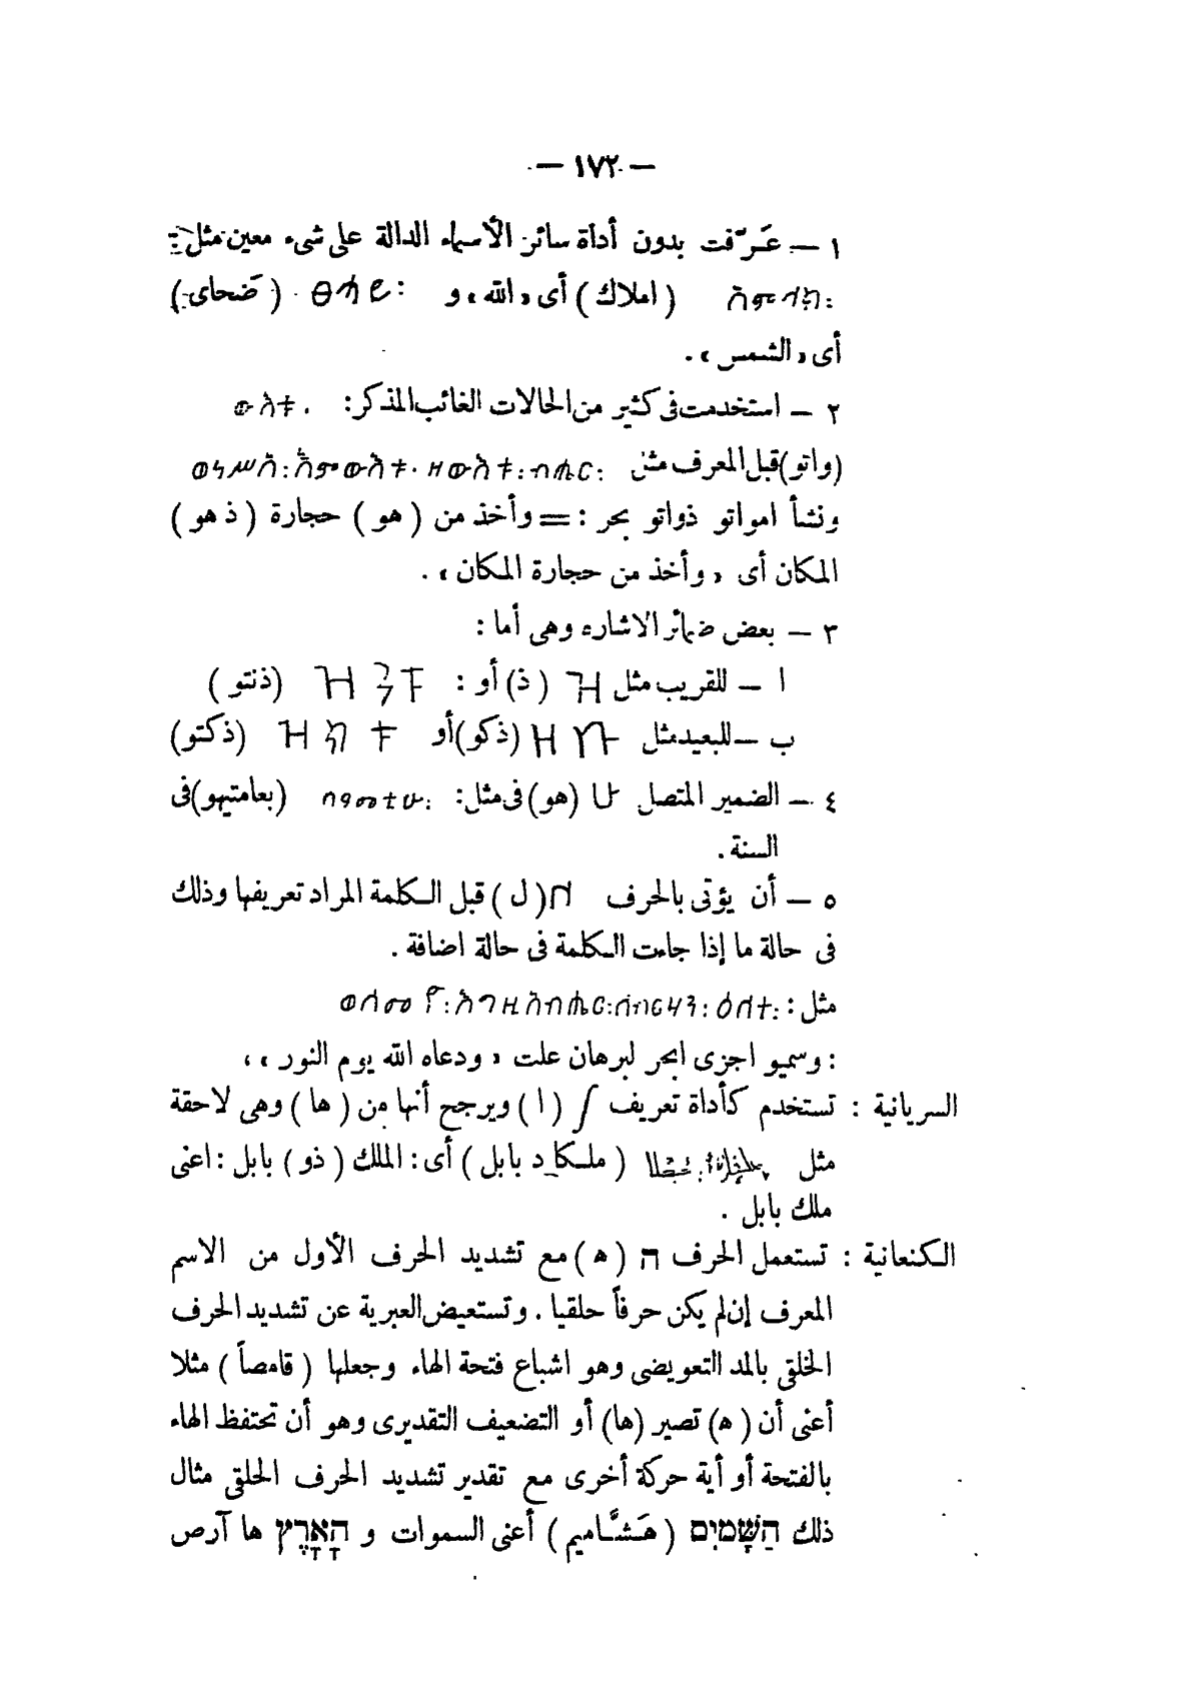 — ١٧٢ —
١ — عَرّفت بدون أداة سائر الأسماء الدالة على شىء معين مثل :
አምላክ: ( املاك ) أى « الله » و ፀሓይ: ( ضَحاى )
أى « الشمس » .
٢ — استخدمت فى كثير من الحالات الغائب المذكر: ውእቱ .
(واتو) قبل المعرف مثل ወነሥአ: እምውእቱ. ዘውእቱ: ብሔር:
ونشأ امواتو ذواتو بحر : = وأخذ من ( هو ) حجارة ( ذ هو )
المكان أى « وأخذ من حجارة المكان » .
٣ — بعض ضمائر الاشاره وهى أما :
ا — للقريب مثل ዝ ( ذ) أو : ዝንቱ (ذنتو )
ب — للبعيد مثل ዝኩ (ذكو) أو ዝክቱ (ذكتو)
٤ — الضمير المتصل ሁ (هو) فى مثل: በዓመቲሁ: (بعامتيهو) فى
السنة .
٥ — أن يؤتى بالحرف ለ( ل ) قبل الكلمة المراد تعريفها وذلك
فى حالة ما إذا جاءت الكلمة فى حالة اضافة .
مثل : ወሰመዮ: እግዚአብሔር: ለብርሃን: ዕለተ:
: وسميو اجزى ابحر لبرهان علت « ودعاه الله يوم النور » ،
السريانية : تستخدم كأداة تعريف ( ا ) ويرجح أنها من ( ها ) وهى لاحقة
مثل ( ملكا د بابل ) أى : الملك ( ذو ) بابل : اعنى
ملك بابل .
الكنعانية : تستعمل الحرف ה ( ه ) مع تشديد الحرف الأول من الاسم
المعرف إن لم يكن حرفاً حلقيا . وتستعيض العبرية عن تشديد الحرف
الحلقى بالمد التعويضى وهو اشباع فتحة الهاء وجعلها ( قامصاً ) مثلا
أعنى أن ( ه ) تصير (ها) أو التضعيف التقديرى وهو أن تحتفظ الهاء
بالفتحة أو أية حركة أخرى مع تقدير تشديد الحرف الحلقى مثال
ذلك הַשָּׁמַיִם ( هَشَّاميم ) أعنى السموات و הָאָרֶץ ها آرص